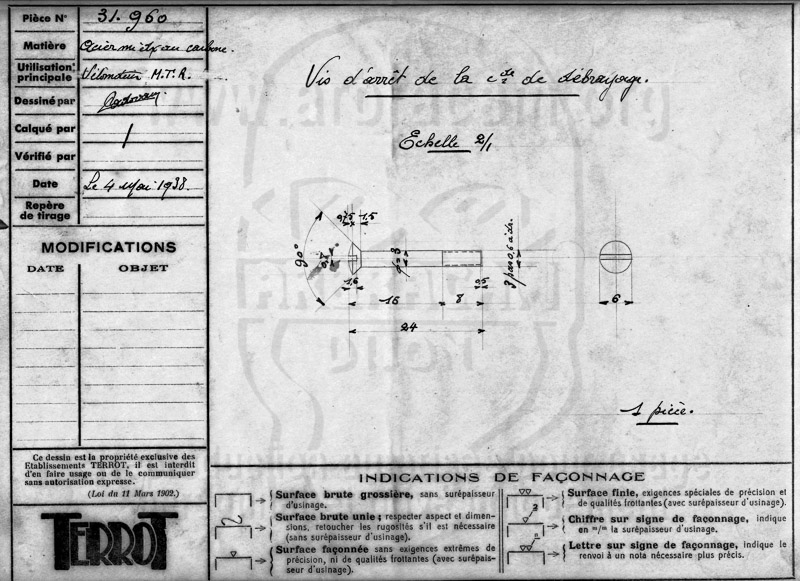 Pièce N° 31.960
Matière Acier mi dx au carbone.
Utilisation principale Vélomoteur M.T.R.
Dessiné par
Calqué par
Vérifié par
Date Le 4 Mai 1938.
Repère de tirage
MODIFICATIONS
DATE OBJET
Ce dessin est la propriété exclusive des
Etablissements TERROT, il est interdit
d'en faire usage ou de le communiquer
sans autorisation expresse.
(Loi du 11 Mars 1902.)
TERROT
Vis d'arrêt de la cde de débrayage.
Echelle 2/1
0,75 1,5
90°
0,8
d=3
3 pas 0,6 à dr.
1,6
0,5
16 8
24
6
1 pièce.
INDICATIONS DE FAÇONNAGE
Surface brute grossière, sans surépaisseur
d'usinage.
Surface brute unie; respecter aspect et dimen-
sions, retoucher les rugosités s'il est nécessaire
(sans surépaisseur d'usinage).
Surface façonnée sans exigences extrêmes de
précision, ni de qualités frottantes (avec surépais-
seur d'usinage).
Surface finie, exigences spéciales de précision et
de qualités frottantes (avec surépaisseur d'usinage).
2
Chiffre sur signe de façonnage, indique
en m/m la surépaisseur d'usinage.
n
Lettre sur signe de façonnage, indique le
renvoi à un nota nécessaire plus précis.